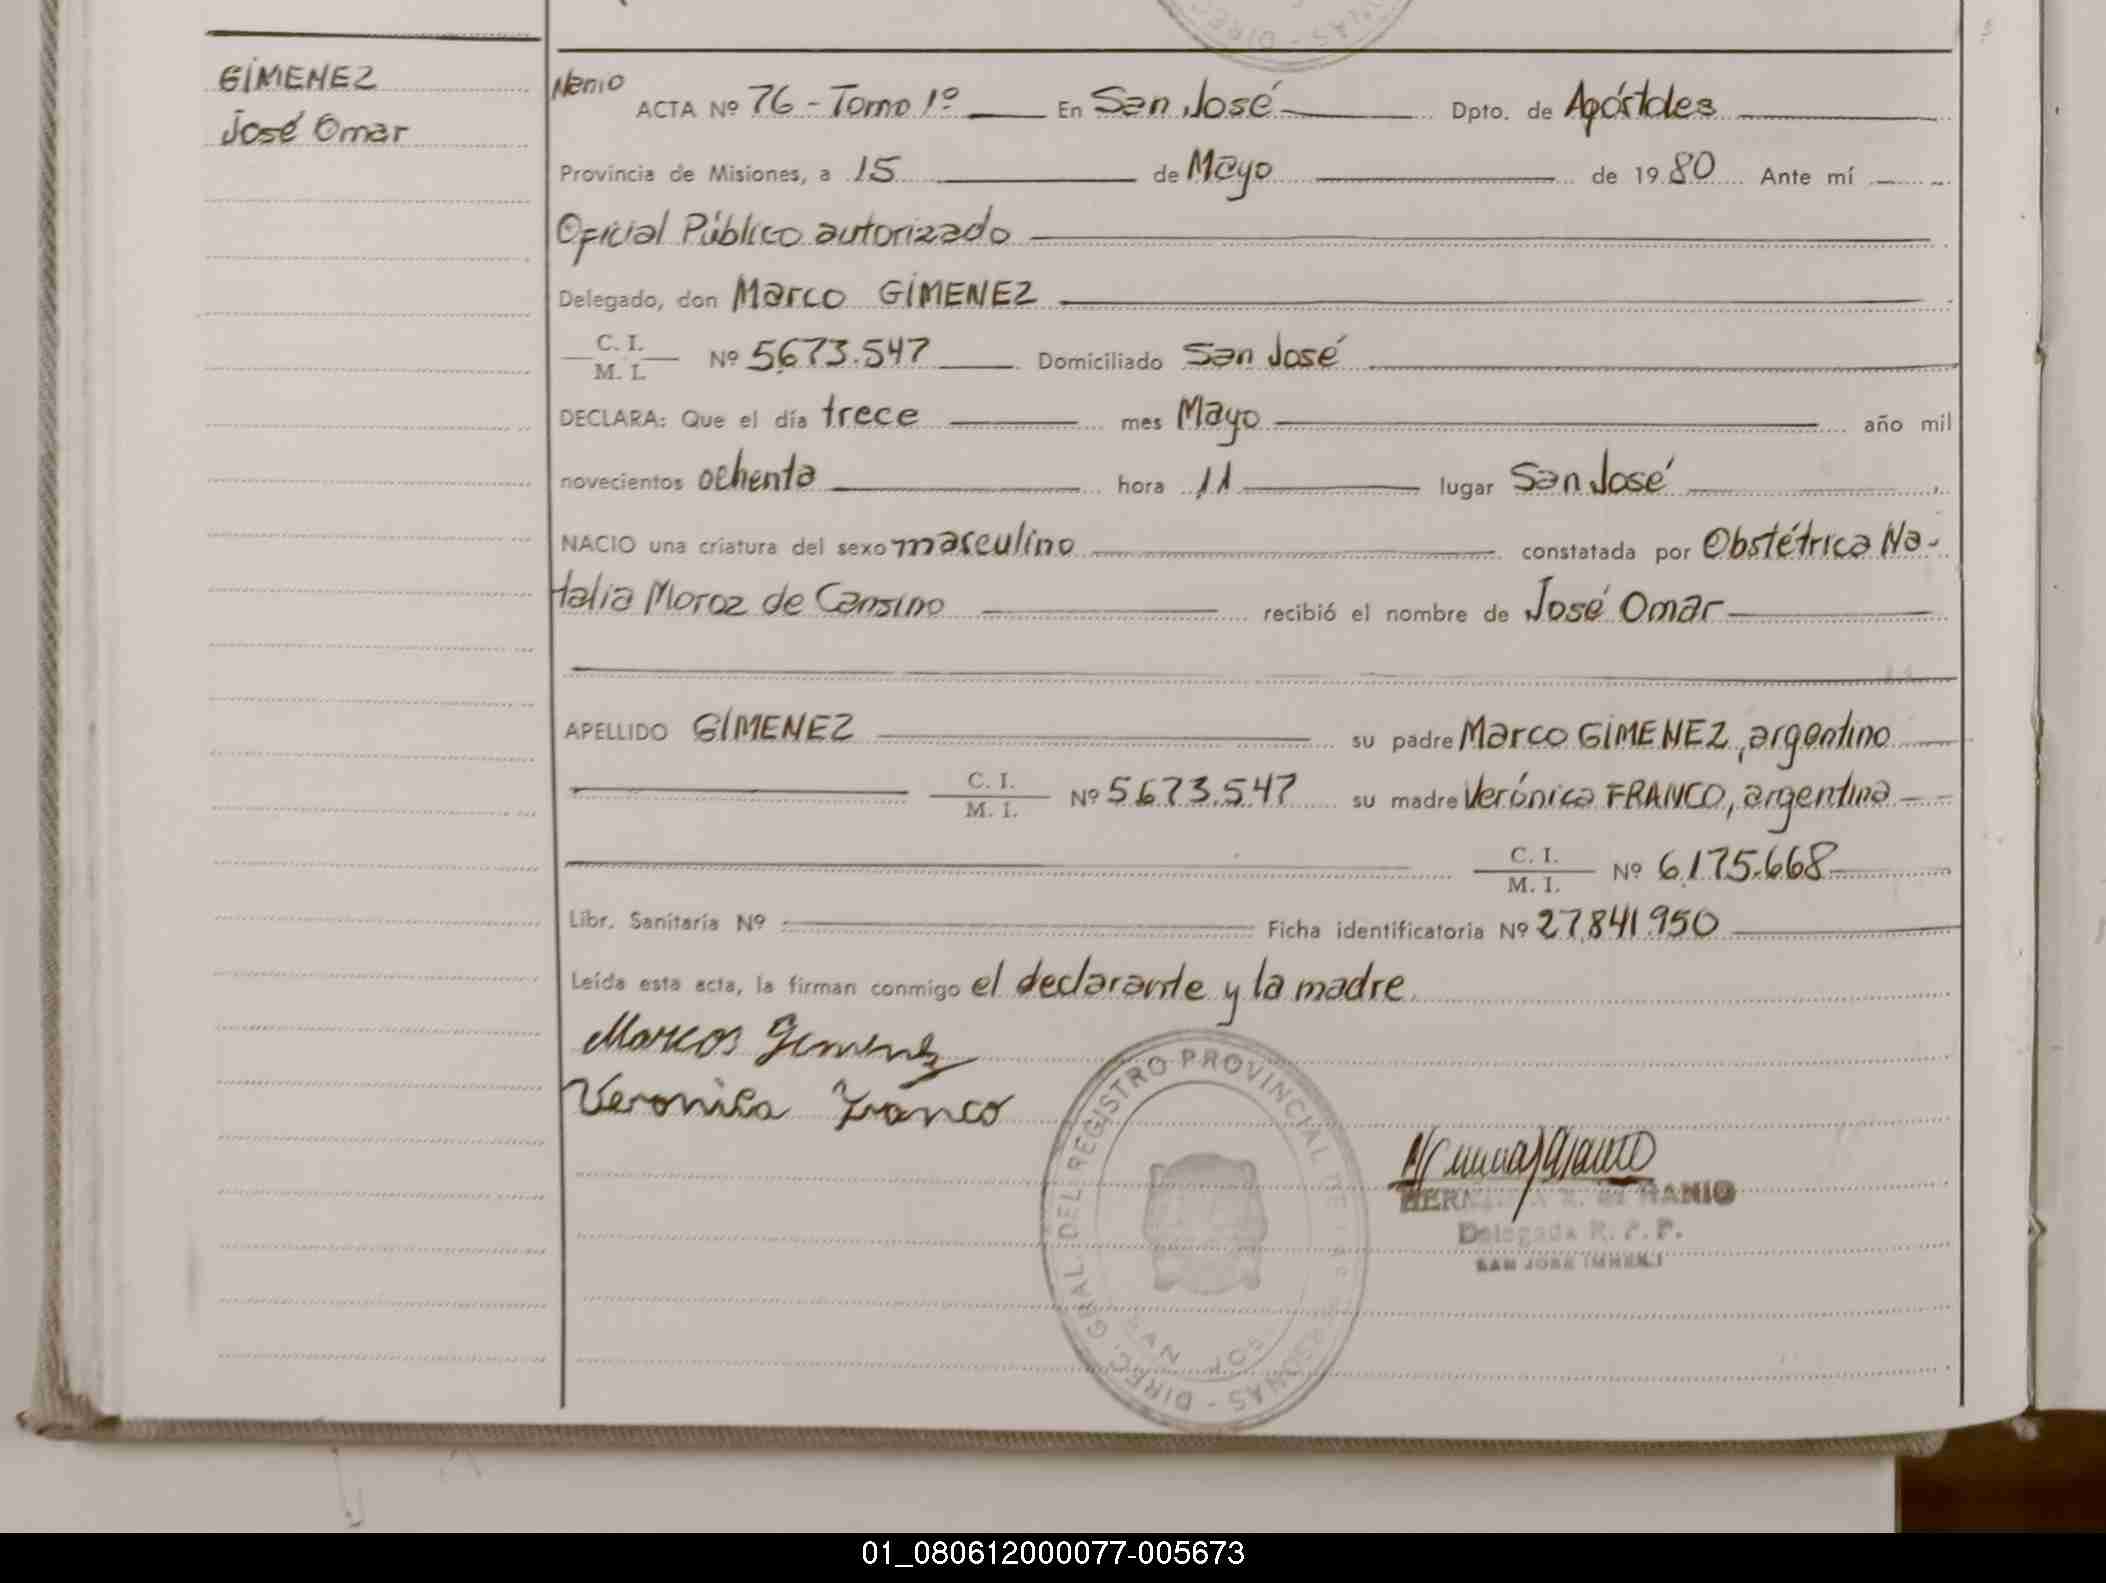 GIMENEZ
José Omar
Nenio
ACTA Nº 76 - Tomo 1º En San José Dpto. de Apóstoles
Provincia de Misiones, a 15 de Mayo de 1980 Ante mí
Oficial Público autorizado
Delegado, don Marco GIMENEZ
C. I. / M. I. Nº 5673.547 Domiciliado San José
DECLARA: Que el día trece mes Mayo año mil
novecientos ochenta hora 11 lugar San José
NACIO una criatura del sexo masculino constatada por Obstétrica Na-
talia Moroz de Cansino recibió el nombre de José Omar
APELLIDO GIMENEZ su padre Marco GIMENEZ, argentino
C. I. / M. I. Nº 5.673.547 su madre Verónica FRANCO, argentina
C. I. / M. I. Nº 6.175.668
Libr. Sanitaria Nº Ficha identificatoria Nº 27.841.950
Leída esta acta, la firman conmigo el declarante y la madre.
Marcos Gimenez
Veronica Franco
DIREC. GRAL. DEL REGISTRO PROVINCIAL DE
SAN JOSE
Delegada R. P. P.
SAN JOSE
01_080612000077-005673